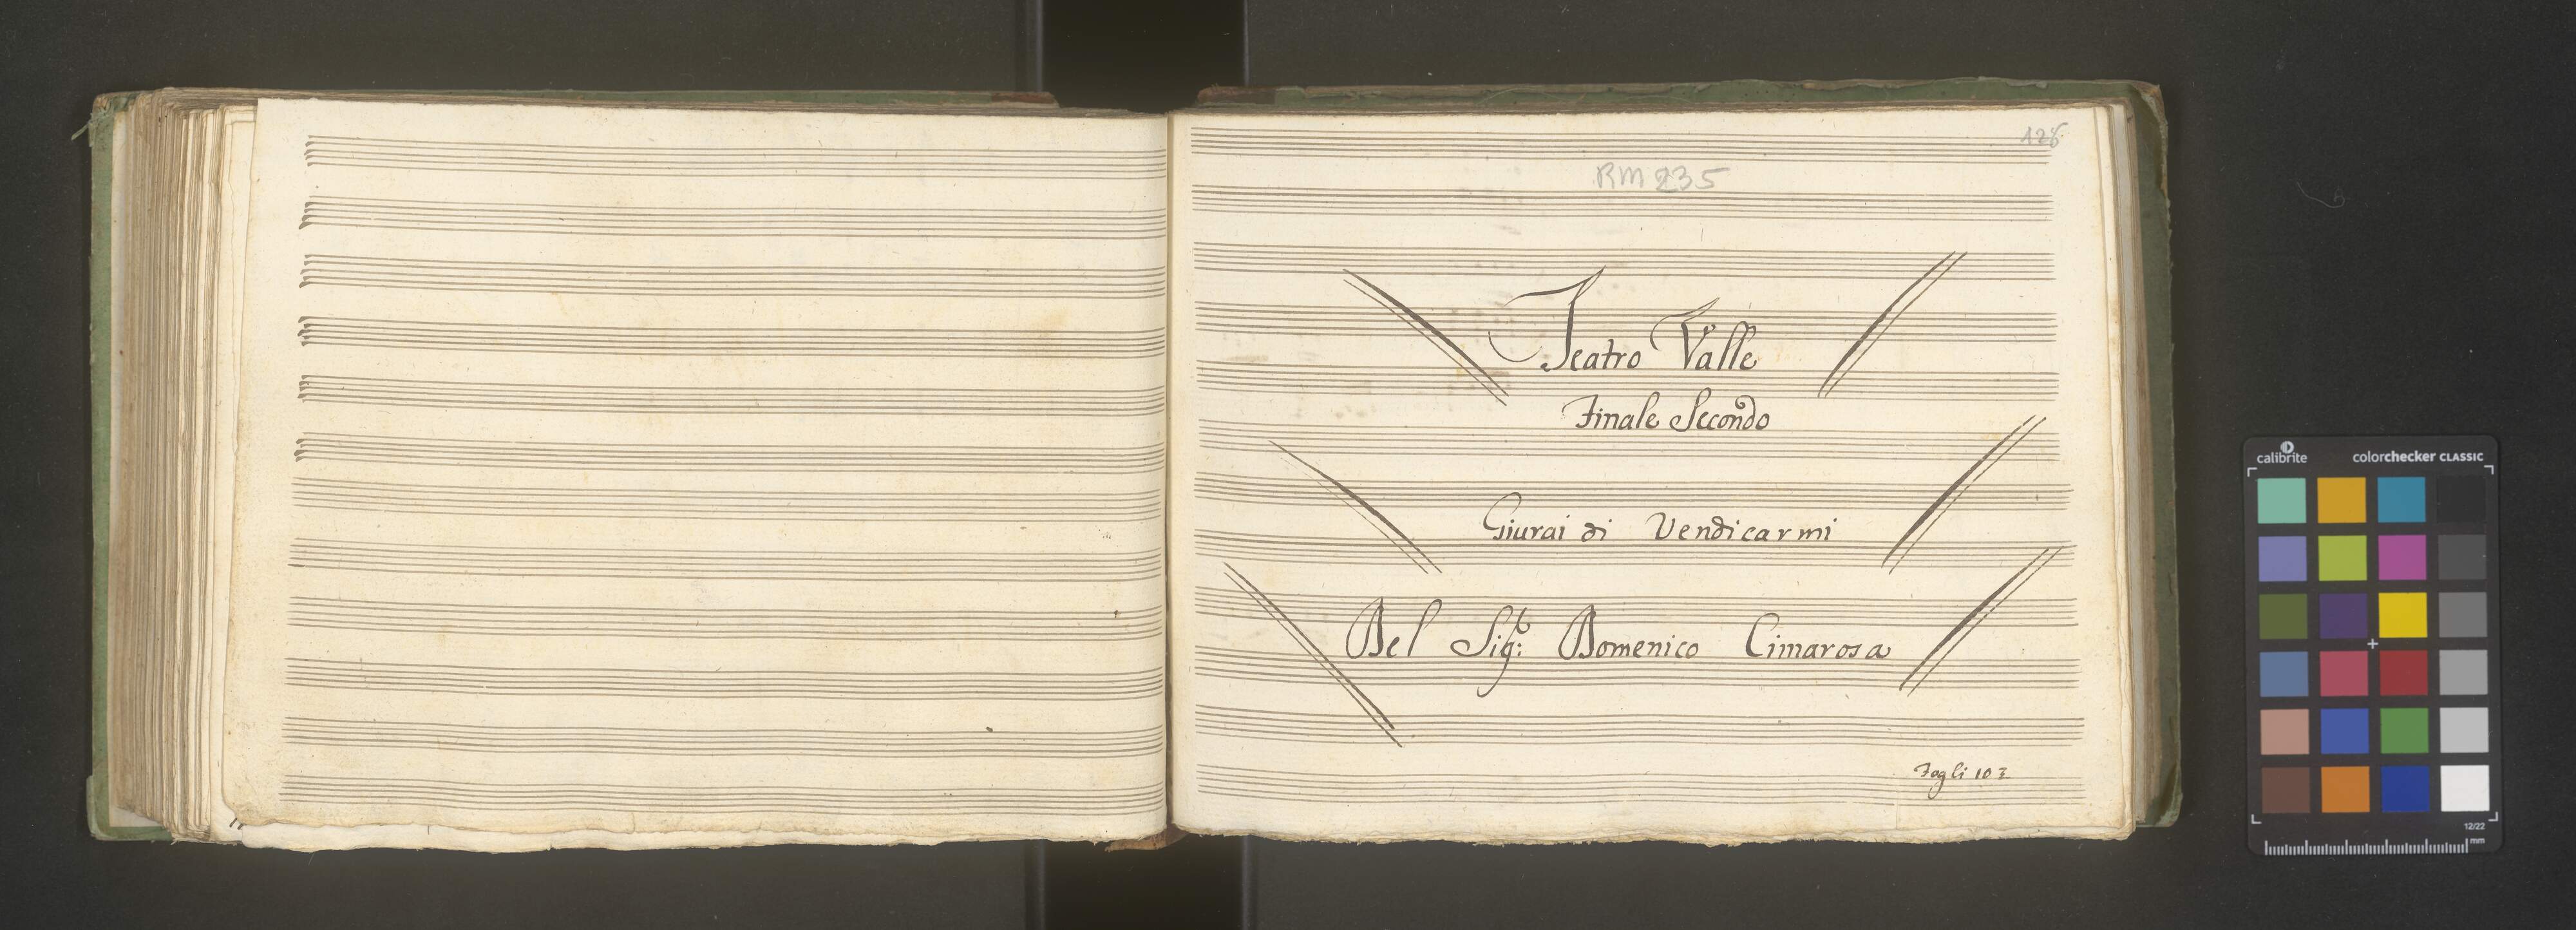 RM 235
Teatro Valle
Finale Secondo
Giurai di Vendicarmi
Del Sig.r Domenico Cimarosa
Fogli
calibrite colorchecker CLASSIC
12/22
mm